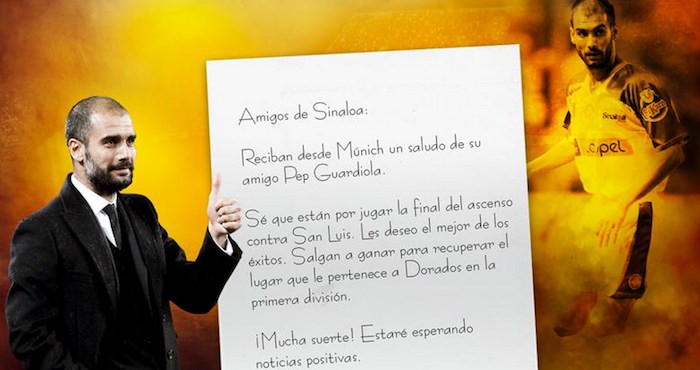 Amigos de Sinaloa:
Reciban desde Múnich un saludo de su
amigo Pep Guardiola.
Sé que están por jugar la final del ascenso
contra San Luis. Les deseo el mejor de los
éxitos. Salgan a ganar para recuperar el
lugar que le pertenece a Dorados en la
primera división.
¡Mucha suerte! Estaré esperando
noticias positivas.
Sinaloa